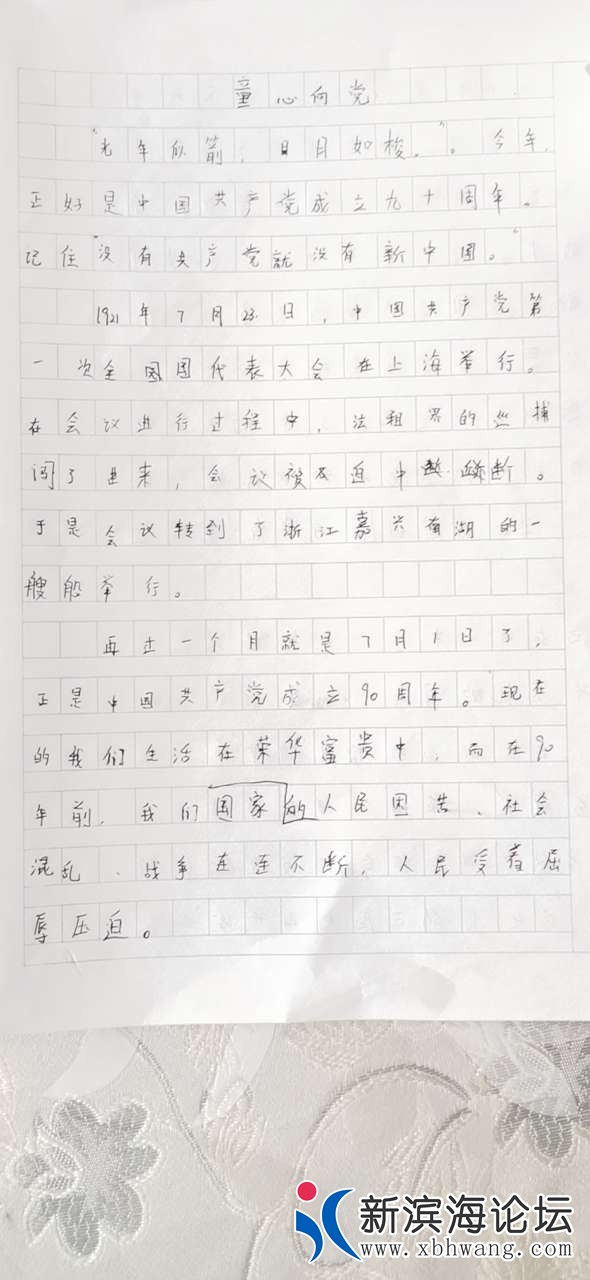 童心向党
"光年似箭，日月如梭。"。今年，
正好是中国共产党成立九十周年。
记住"没有共产党就没有新中国。"
1921年7月23日，中国共产党第
一次全国国代表大会在上海举行。
在会议进行过程中，法租界的巡捕
闯了进来，会议被迫中断。
于是会议转到了浙江嘉兴南湖的一
艘船举行。
再过一个月就是7月1日了，
正是中国共产党成立90周年。现在
的我们生活在荣华富贵中，而在90
年前，我们国家的人民困苦、社会
混乱、战争连连不断，人民受着屈
辱压迫。
新滨海论坛
www.xbhwang.com